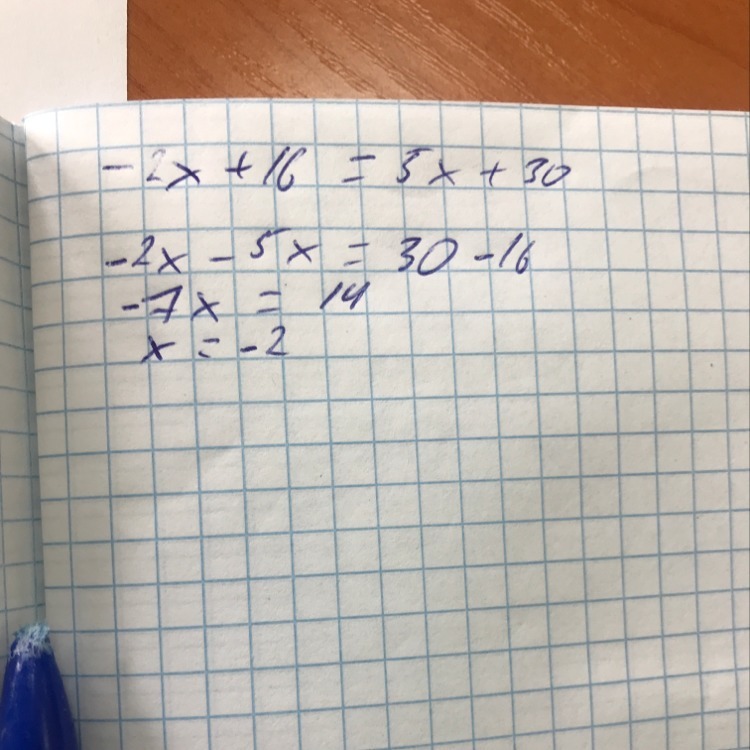 -2x + 16 = 5x + 30
-2x - 5x = 30 - 16
-7x = 14
x = -2